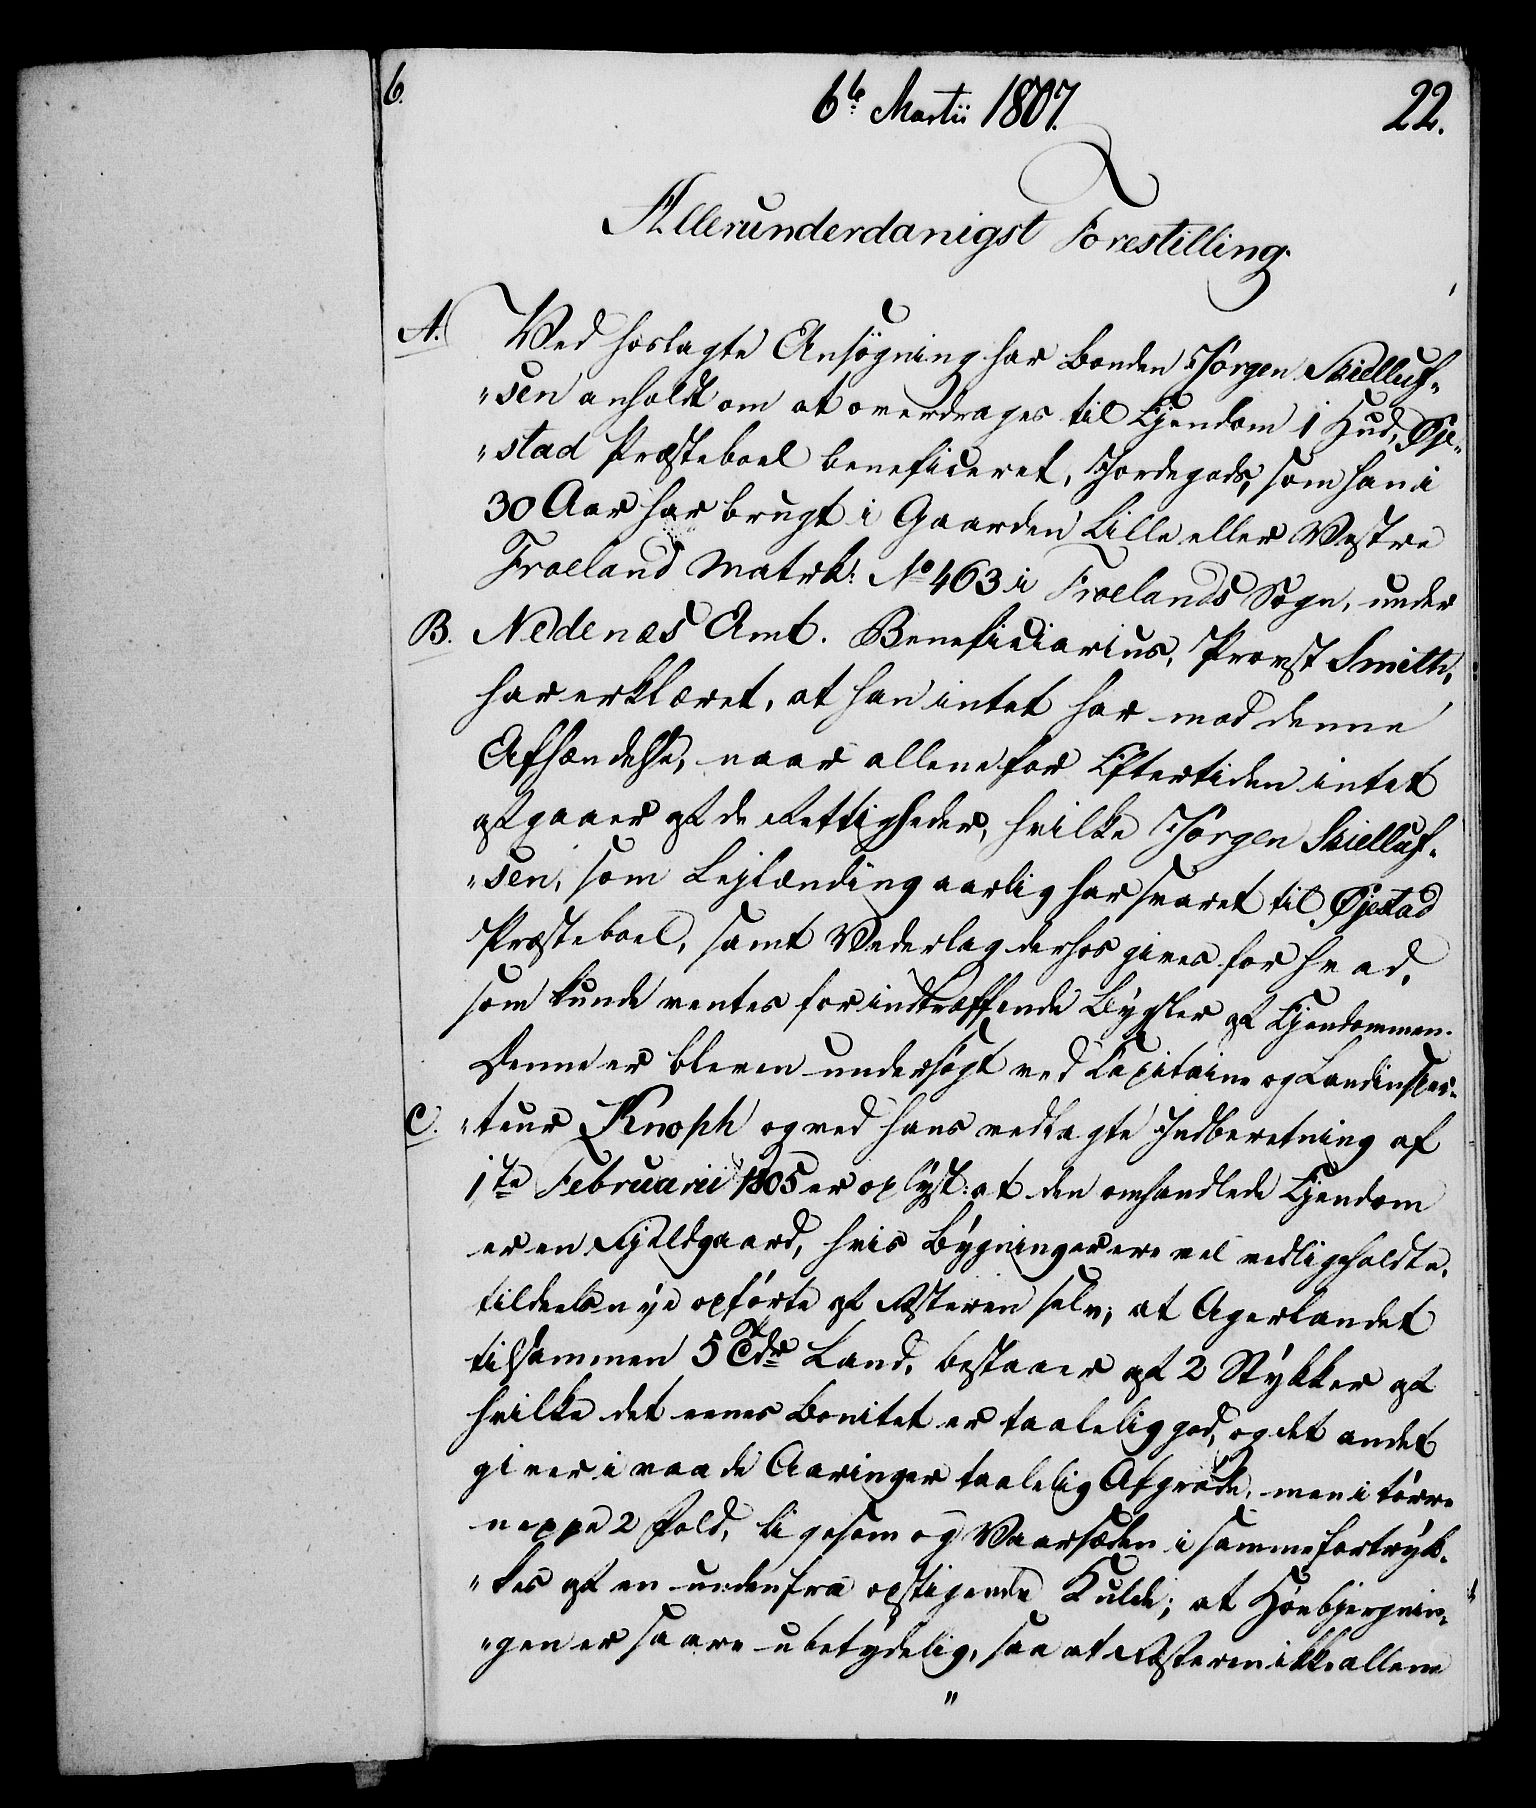 6.
6te Martii 1807.
22.
Allerunderdanigst Forestilling.
A. Ved hoslagte Ansøgning har Bonden Jørgen Skielluf-
"sen anholdt om at overdrages til Ejendom 1 Hud, Øje-
"stad Præsteboel beneficeret, Jordegods, som han i
30 Aar har brugt i Gaarden Lille eller Vestre
Froeland Matrk: No 463 i Froelands Sogn, under
B. Nedenæs Amt. Beneficiarius, Provst Smith,
har erklæret, at han intet har mod denne
Afhændelse, naar allene for Eftertiden intet
afgaaer af de Rettigheder, hvilke Jørgen Skielluf-
"sen, som Lejlænding aarlig har svaret til Øjestad
Præsteboel, samt Vederlag derhos gives for hvad,
som kunde ventes for indtræffende Bygsler af Ejendommen.
Denne er bleven undersøgt ved Capitaine og Landinspec-
C. "teur Knoph og ved hans vedlagte Indberetning af
1te Februarii 1805 er oplyst: at den omhandlede Ejendom
er en Fjeldgaard, hvis Bygninger ere vel vedligeholdte,
tildeels nye opførte af Fæsteren selv; at Agerlandet
tilsammen 5 Tdr Land, bestaaer af 2 Stykker af
hvilke det eenes Bonitet er taalelig god, og det andet
giver i vaade Aaringer taalelig Afgrøde, men i tørre
neppe 2 Fold, ligesom og Vaarsæden i samme fortryk-
"kes af en undenfra opstigende Kulde; at Høebjergnin-
"gen er saare ubetydelig, saa at Fæsteren ikke allene
"